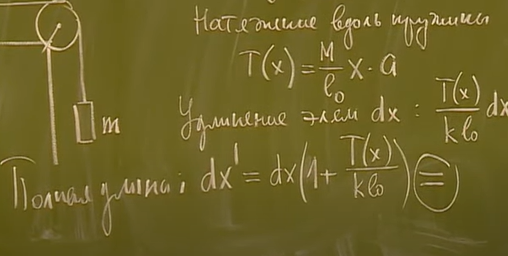 Натяжение вдоль пружины
T(x) = M/l₀ x · a
m
Удлинение элем dx : T(x)/kl₀ dx
Полная длина: dx' = dx(1 + T(x)/kl₀) =